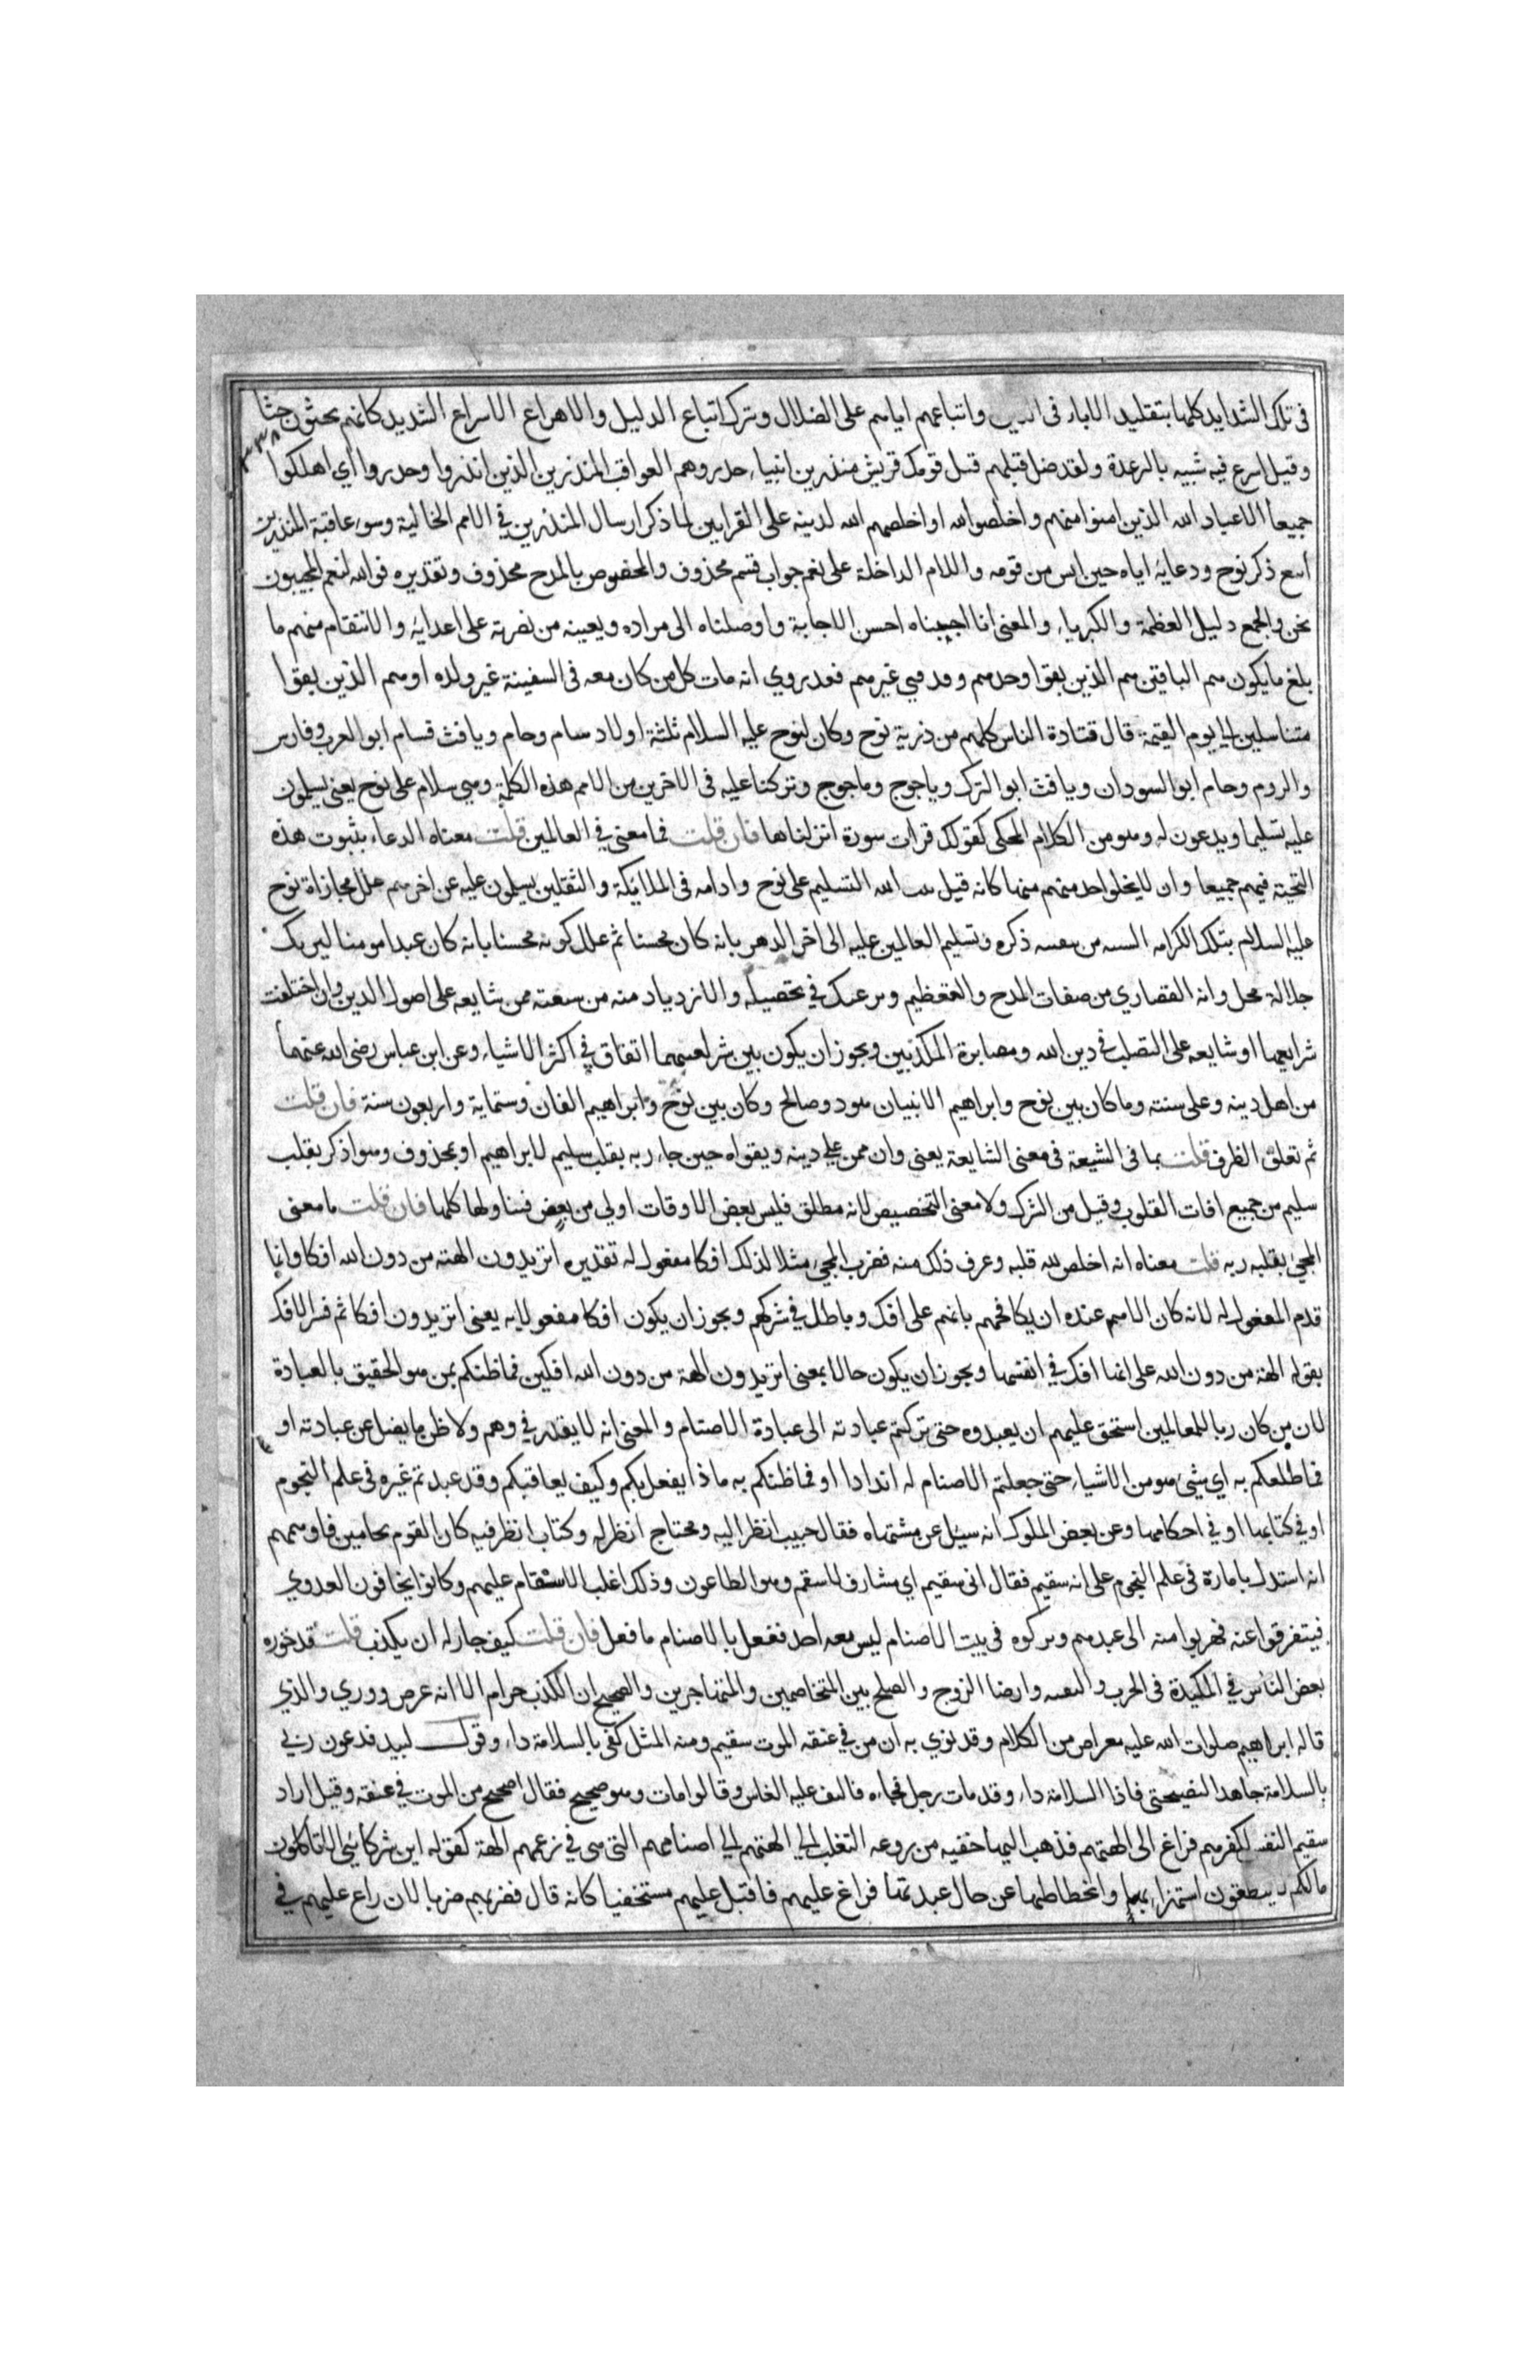 فى تلك الشدايد كلها بتقليد الاباء فى الدين واتباعهم اياهم على الضلال وترك اتباع الدليل والاهراع الاسراع الشديد كانهم يحثون حثا
وقيل اسرع فيه شبيه بالرعدة ولقد ضل قبلهم قبل قومك قريش منذرين انبياء حذروهم العواقب المنذرين الذين انذروا وحذروا اي اهلكوا
جميعا الا عباد الله الذين امنوا منهم واخلصوا لله او اخلصهم الله لدينه على القرايين لما ذكر ارسال المنذرين في الامم الخالية وسوء عاقبة المنذرين
اتبع ذكر نوح ودعايه اياه حين ايس من قومه واللام الداخلة على نعم جواب قسم محذوف والمخصوص بالمدح محذوف وتقديره فوالله لنعم المجيبون
نحن والجمع دليل العظمة والكبرياء والمعنى انا اجبناه احسن الاجابة واوصلناه الى مراده وبعينه من نصرته على اعدايه والانتقام منهم ما
بلغ ما يكون هم الباقين هم الذين بقوا وحدهم وقد فني غيرهم فقد روي انه مات كل من كان معه فى السفينة غير ولده او هم الذين بقوا
متناسلين الى يوم القيمة قال قتادة الناس كلهم من ذرية نوح وكان لنوح عليه السلام ثلثة اولاد سام وحام ويافث فسام ابو العرب وفارس
والروم وحام ابو السودان ويافث ابو الترك وياجوج وماجوج وتركنا عليه فى الاخرين من الامم هذه الكلمة وهي سلام على نوح يعنى يسلمون
عليه تسليما ويدعون له وهو من الكلام المحكى كقولك قرات سورة انزلناها فان قلت فما معنى في العالمين قلت معناه الدعاء بثبوت هذه
التحية فيهم جميعا وان لا يخلوا احد منهم منها كانه قيل ثبت الله التسليم على نوح وادامه فى الملائكة والثقلين يسلمون عليه عن اخرهم علل مجازاة نوح
عليه السلام بتلك الكرامه السنيه من تبقيه ذكره وتسليم العالمين عليه الى اخر الدهر بانه كان محسنا ثم علل كونه محسنا بانه كان عبدا مومنا ليريك
جلالة محل وانه القصاري من صفات المدح والتعظيم ويرغبك في تحصيله والازدياد منه من شيعته ممن شايعه على اصول الدين وان اختلفت
شرايعهما او شايعه على التصلب في دين الله ومصابرة المكذبين ويجوز ان يكون بين شريعتيهما اتفاق في اكثر الاشياء وعن ابن عباس رضى الله عنهما
من اهل دينه وعلى سنته وما كان بين نوح وابراهيم الا نبيان هود وصالح وكان بين نوح وابراهيم الفان وستماية واربعون سنة فان قلت
ثم تعلق الظرف قلت بما فى الشيعة فى معنى الشايعة يعنى وان ممن على دينه وبقواه حين جاء ربه بقلب سليم لابراهيم او بمحذوف وهو اذكر بقلب
سليم من جميع افات القلوب وقيل من الشرك ولا معنى التخصيص لانه مطلق فليس بعض الاوقات اولى من بعض فتناولها كلها فان قلت ما معنى
المجى بقلبه ربه قلت معناه انه اخلص لله قلبه وعرف ذلك منه فضرب المجى مثلا لذلك افكا مفعول له تقديره اتريدون الهة من دون الله افكا وانما
قدم المفعول له لانه كان الاهم عنده ان يكافحهم بانهم على افك وباطل في شركهم ويجوز ان يكون افكا مفعولا به يعنى اتريدون افكا ثم فسر الافك
بقوله الهة من دون الله على انها افك في انفسها ويجوز ان يكون حالا بمعنى اتريدون الهة من دون الله افكين فما ظنكم بمن هو الحقيق بالعبادة
لان من كان ربا للعالمين استحق عليهم ان يعبدوه حتى تركتم عبادته الى عبادة الاصنام والمعنى انه لا يقدر في وهم ولا ظن ما يضل عن عبادته او
فما ظنكم به اي شئ هو من الاشياء حتى جعلتم الاصنام له اندادا او فما ظنكم به ماذا يفعل بكم وكيف يعاقبكم وقد عبدتم غيره فى علم النجوم
او في كتابها او في احكامها وعن بعض الملوك انه سيل عن مشتهاه فقال حبيب انظر اليه ومحتاج انظر له وكتاب انظر فيه كان القوم نجامين فاوهمهم
انه استدل بامارة فى علم النجوم على انه سقيم فقال انى سقيم اي مشارف للسقم وهو الطاعون وذلك اغلب الاسقام عليهم وكانوا يخافون العدوي
فيتفرقوا عنه فهربوا منه الى عيدهم وتركوه فى بيت الاصنام ليس معه احد ففعل بالاصنام ما فعل فان قلت كيف جاز له ان يكذب قلت قد جوزه
بعض الناس في المكيدة فى الحرب والتقيه وارضا الزوج والصلح بين المتخاصمين والمتهاجرين والصحيح ان الكذب حرام الا انه عرض ووري والذي
قاله ابراهيم صلوات الله عليه معراض من الكلام وقد نوي به ان من في عنقه الموت سقيم ومنه المثل كفى بالسلامة داء وقول لبيد فدعوت ربي
بالسلامة جاهدا ليصحنى فاذا السلامة داء وقد مات رجل فجاءه فالتف عليه الناس وقالوا مات وهو صحيح فقال اصحيح من الموت في عنقه وقيل اراد
سقيم النفس لكفرهم فراغ الى الهتهم فذهب اليها خفيه من روغه الثعلب الى الهتهم الى اصنامهم التى هى في زعمهم الهة كقوله اين شركائى الا تاكلون
ما لكم لا تنطقون استهزاء بها وانحطاطها عن حال عبدتها فراغ عليهم فاقبل عليهم مستخفيا كانه قال فضربهم ضربا لان راغ عليهم في